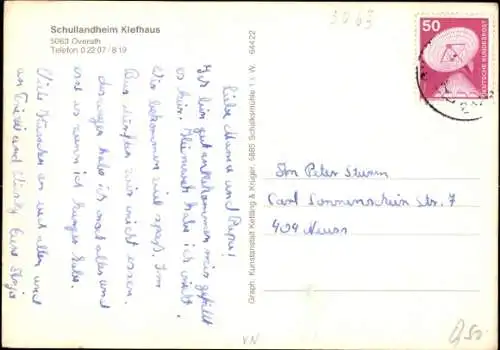 Schullandheim Klefhaus
5063 Overath
Telefon 0 22 07 / 8 19
5063
50
DEUTSCHE BUNDESPOST
Liebe Mama und Papa!
Ich bin gut angekommen mir gefällt
es hier. Heimweh habe ich nicht.
Wir bekommen viel Spaß. Im
Bus dürfen wir nicht essen.
deswegen habe ich noch alles und
esse es wenn ich hunger habe.
Viele Grüsschen an euch allen und
an und eure
Graph. Kunstanstalt Kettling & Krüger, 5885 Schalksmühle 1 i. W. 64422
Peter Sturm
Carl Sonnenschein Str. 7
404 Neuss
VN